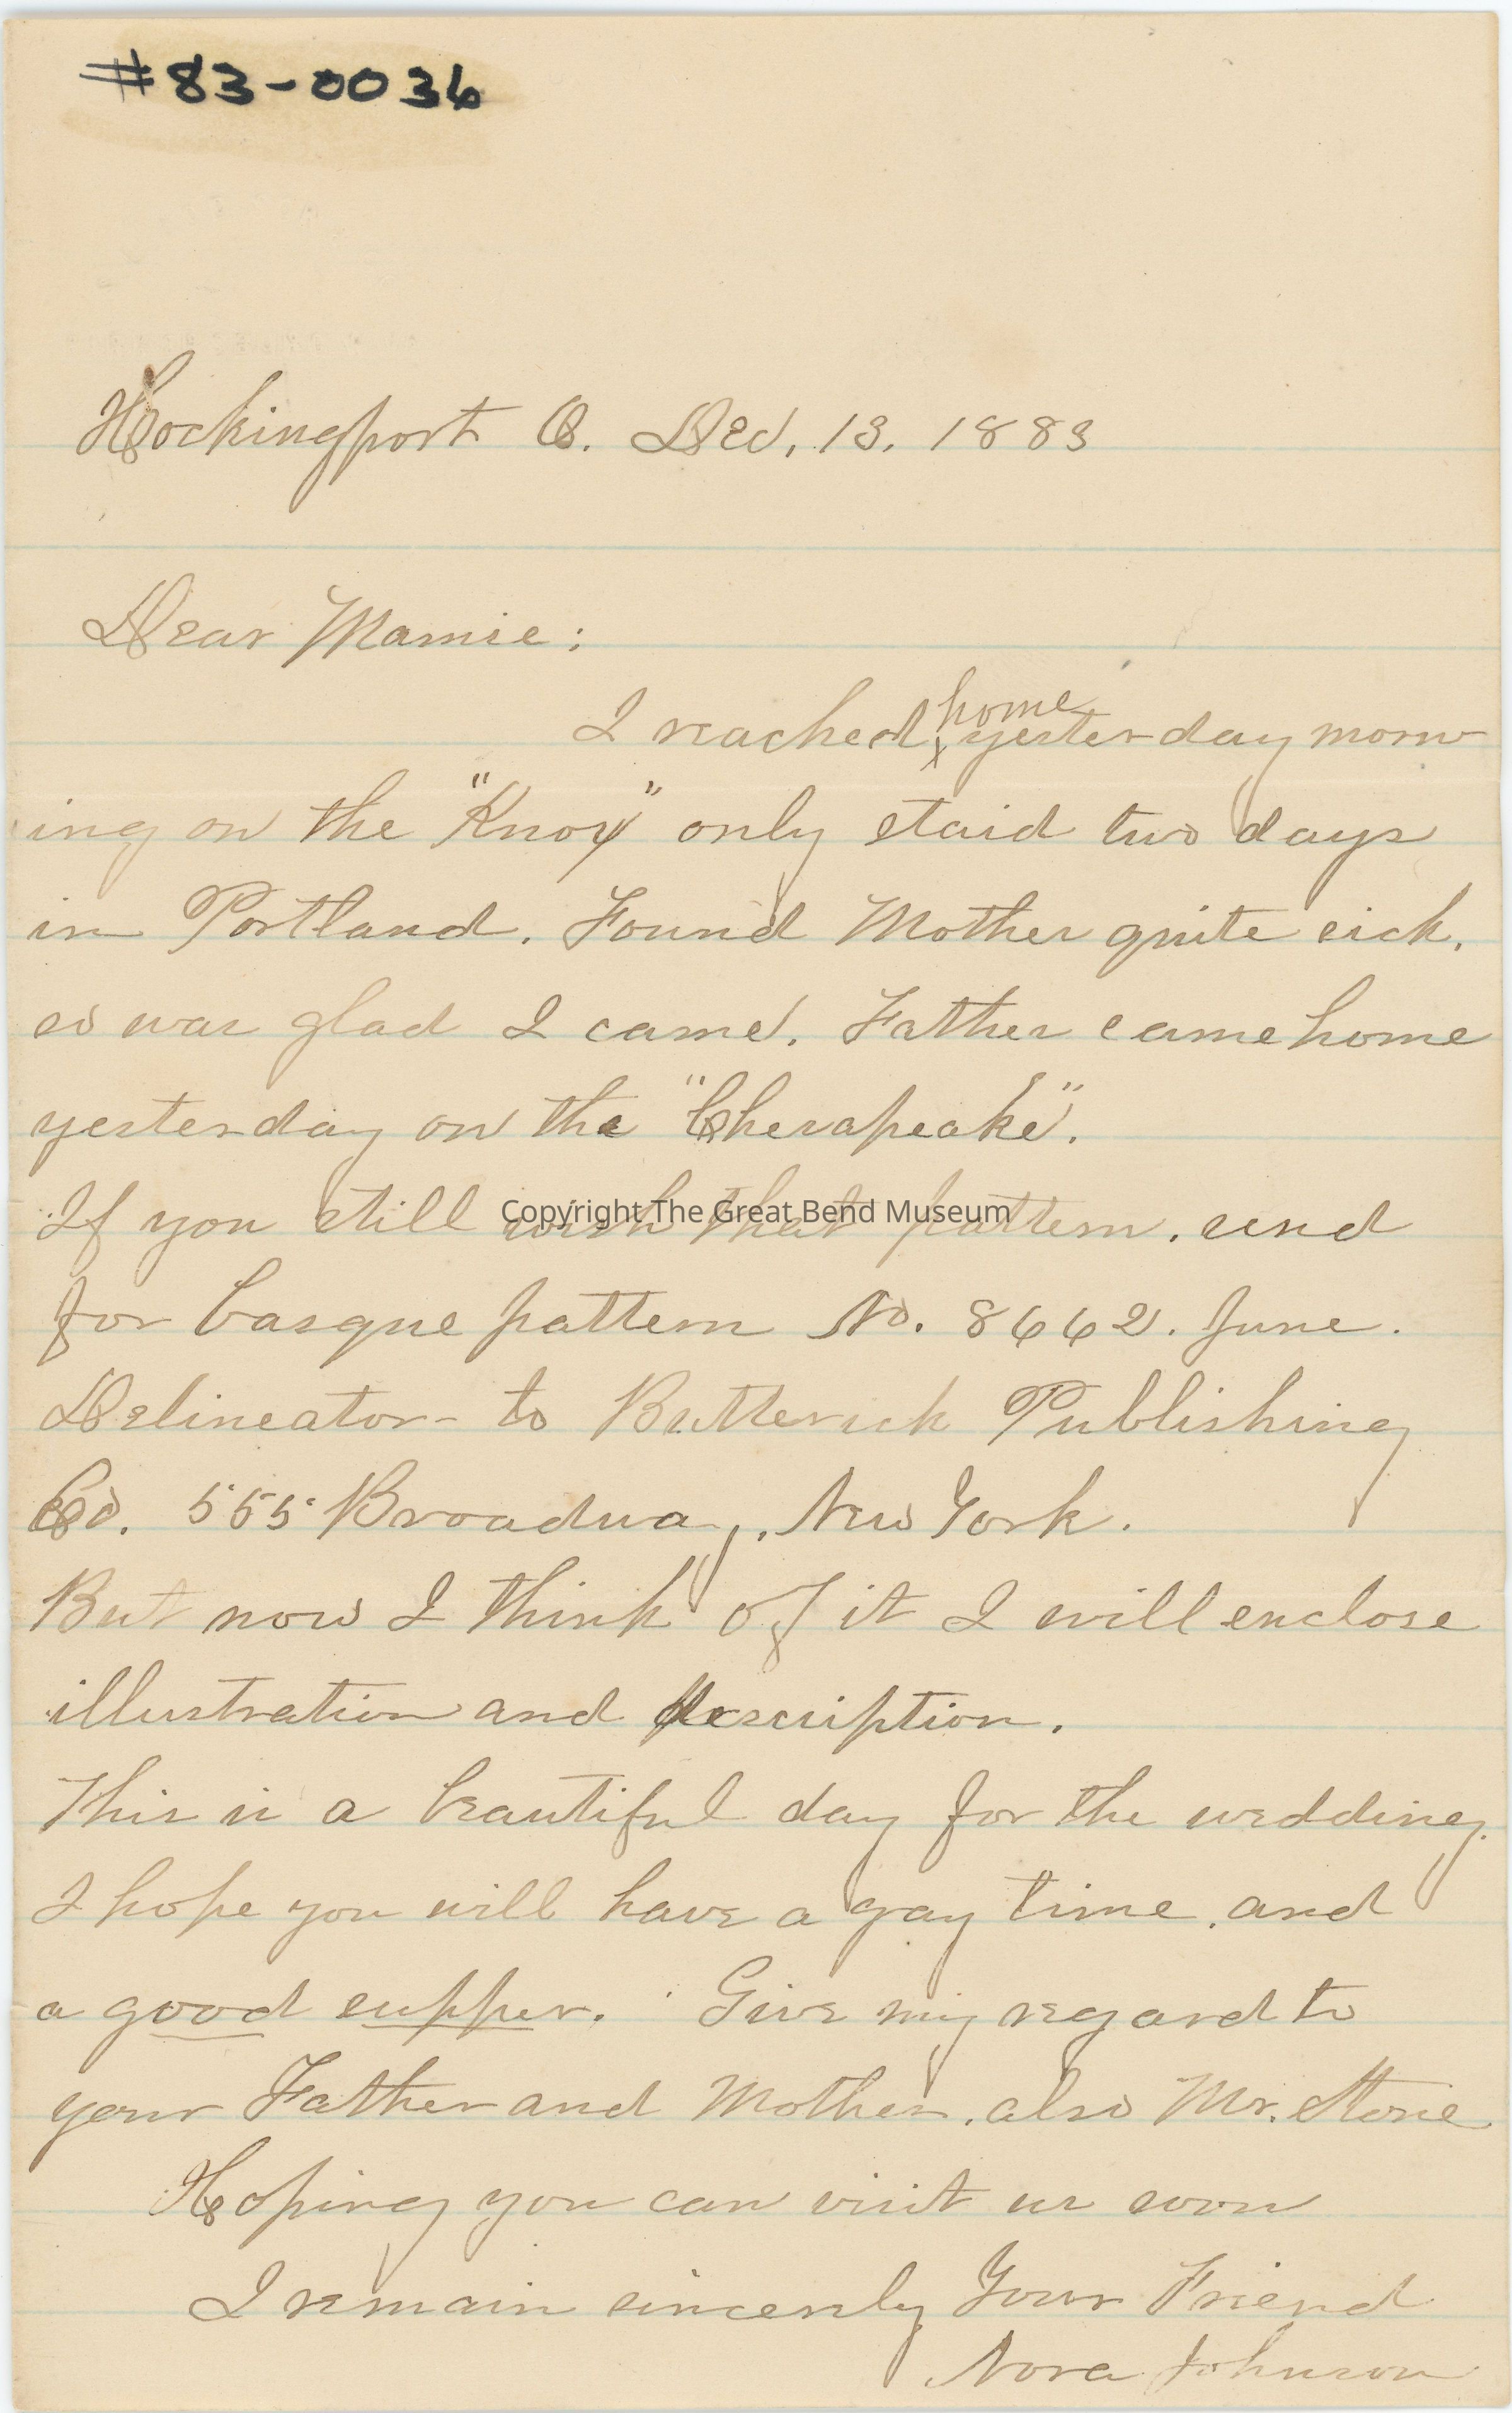 #83-0036
Hockingport O. Dec, 13, 1883
Dear Mamie:
home
I reached yesterday morn
ing on the "Knox" only staid two days
in Portland. Found Mother quite sick.
so was glad I came. Father came home
yesterday on the "Chesapeake".
If you still wish that pattern, send
Copyright The Great Bend Museum
for basque pattern No. 8662. June.
Delineator - to Butterick Publishing
Co. 555 Broadway, New York.
But now I think of it I will enclose
illustration and description.
This is a beautiful day for the wedding.
I hope you will have a gay time, and
a good supper. Give my regard to
your Father and Mother, also Mr. Stone
Hoping you can visit us soon
I remain sincerely Your Friend
Nora Johnson